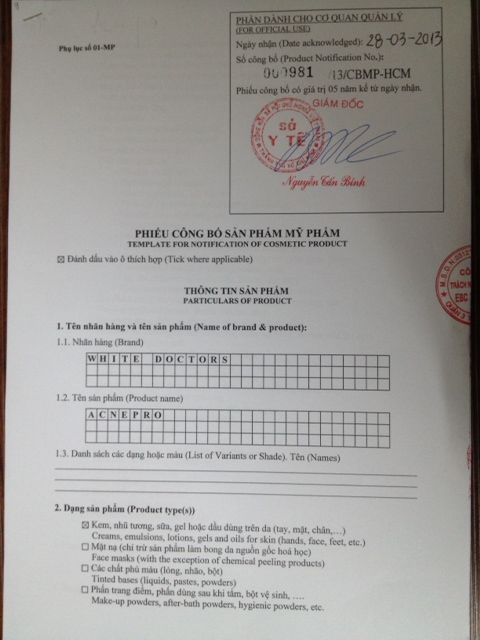 Phụ lục số 01-MP
PHẦN DÀNH CHO CƠ QUAN QUẢN LÝ
(FOR OFFICIAL USE)
Ngày nhận (Date acknowledged): 28-03-2013
Số công bố (Product Notification No.):
000981 /13/CBMP-HCM
Phiếu công bố có giá trị 05 năm kể từ ngày nhận.
GIÁM ĐỐC
SỞ
Y TẾ
Nguyễn Tấn Bỉnh
PHIẾU CÔNG BỐ SẢN PHẨM MỸ PHẨM
TEMPLATE FOR NOTIFICATION OF COSMETIC PRODUCT
☒ Đánh dấu vào ô thích hợp (Tick where applicable)
THÔNG TIN SẢN PHẨM
PARTICULARS OF PRODUCT
1. Tên nhãn hàng và tên sản phẩm (Name of brand & product):
1.1. Nhãn hàng (Brand)
WHITE DOCTORS
1.2. Tên sản phẩm (Product name)
ACNEPRO
1.3. Danh sách các dạng hoặc màu (List of Variants or Shade). Tên (Names)
2. Dạng sản phẩm (Product type(s))
☒ Kem, nhũ tương, sữa, gel hoặc dầu dùng trên da (tay, mặt, chân,...)
Creams, emulsions, lotions, gels and oils for skin (hands, face, feet, etc.)
☐ Mặt nạ (chỉ trừ sản phẩm làm bong da nguồn gốc hoá học)
Face masks (with the exception of chemical peeling products)
☐ Các chất phủ màu (lỏng, nhão, bột)
Tinted bases (liquids, pastes, powders)
☐ Phấn trang điểm, phấn dùng sau khi tắm, bột vệ sinh, .....
Make-up powders, after-bath powders, hygienic powders, etc.